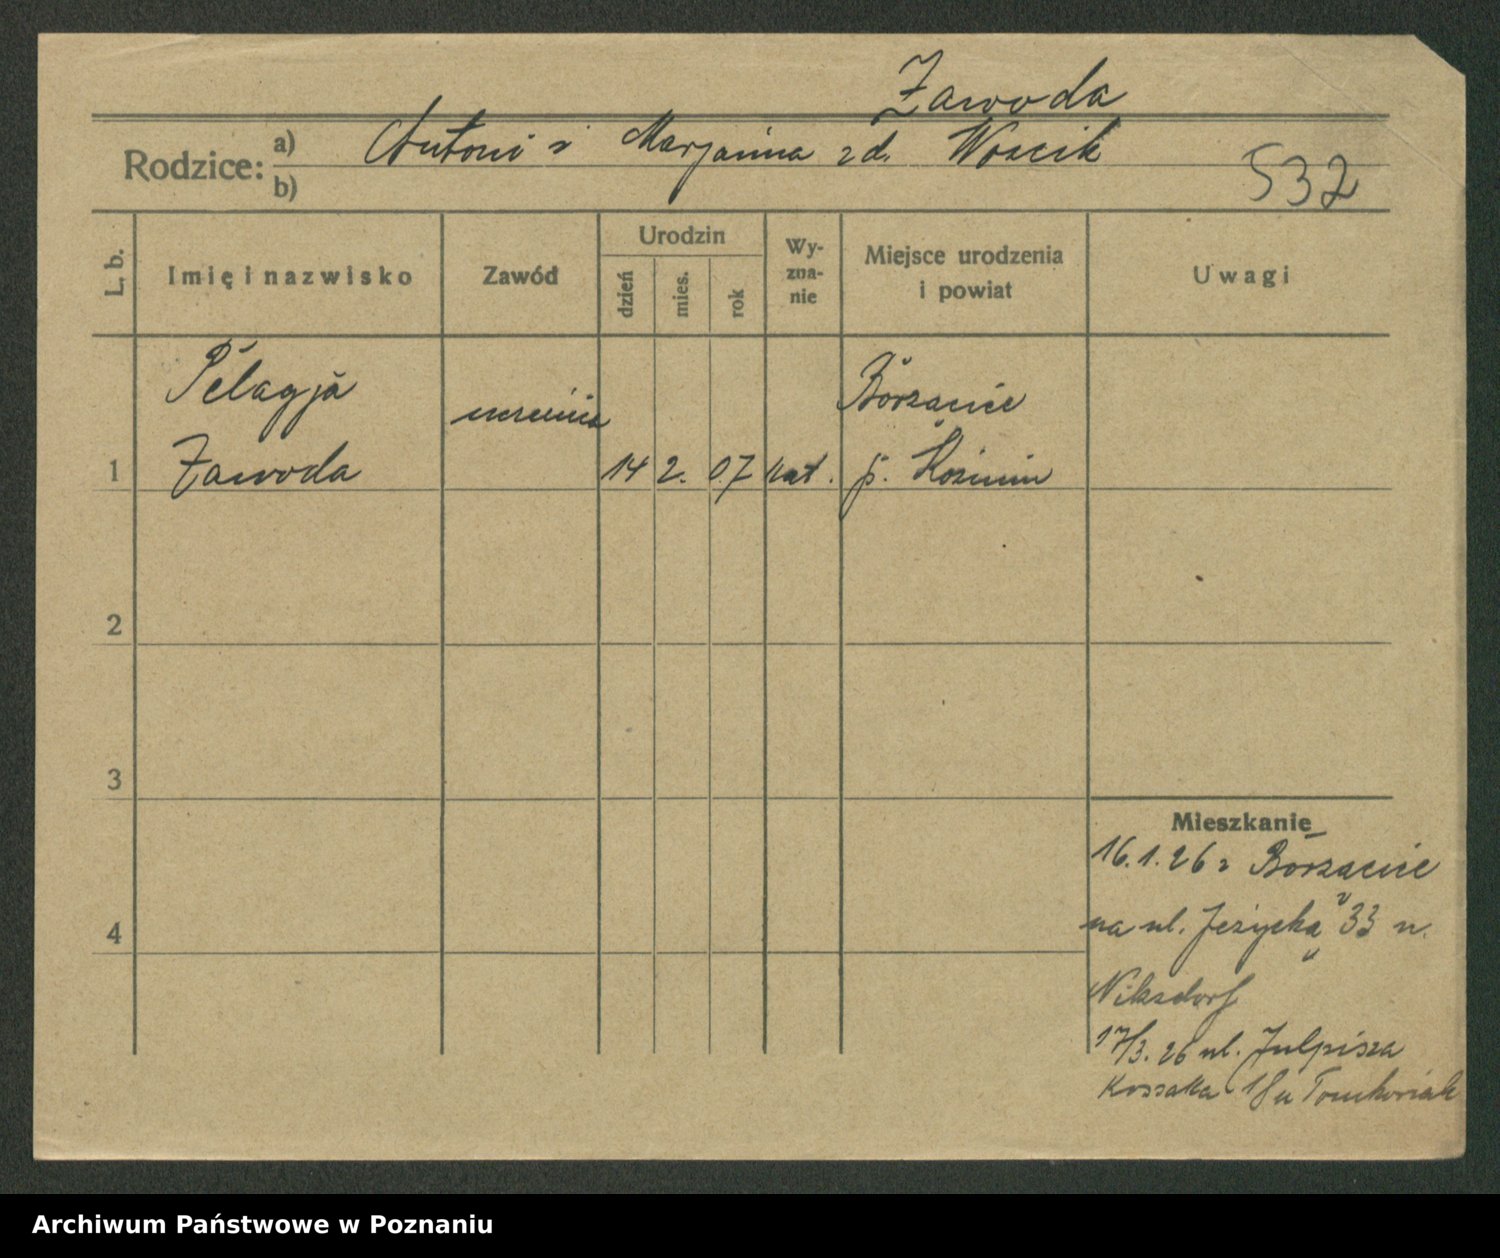 Zawoda
Rodzice: a) Antoni i Marjanna zd. Woscik
b)
532
L. b.
Imię i nazwisko
Zawód
Urodzin
dzień
mies.
rok
Wy-
zna-
nie
Miejsce urodzenia
i powiat
Uwagi
Pelagja
uczenica
Borzęcice
1 Zawoda 14 2. 07 kat. p. Koźmin
2
3
4
Mieszkanie
16.1.26 z Borzęcic
na ul. Jeżycką 33 u.
Niksdorf
17/3. 26 ul. Juljusza
Kossaka 18 u Tomkowiak
Archiwum Państwowe w Poznaniu